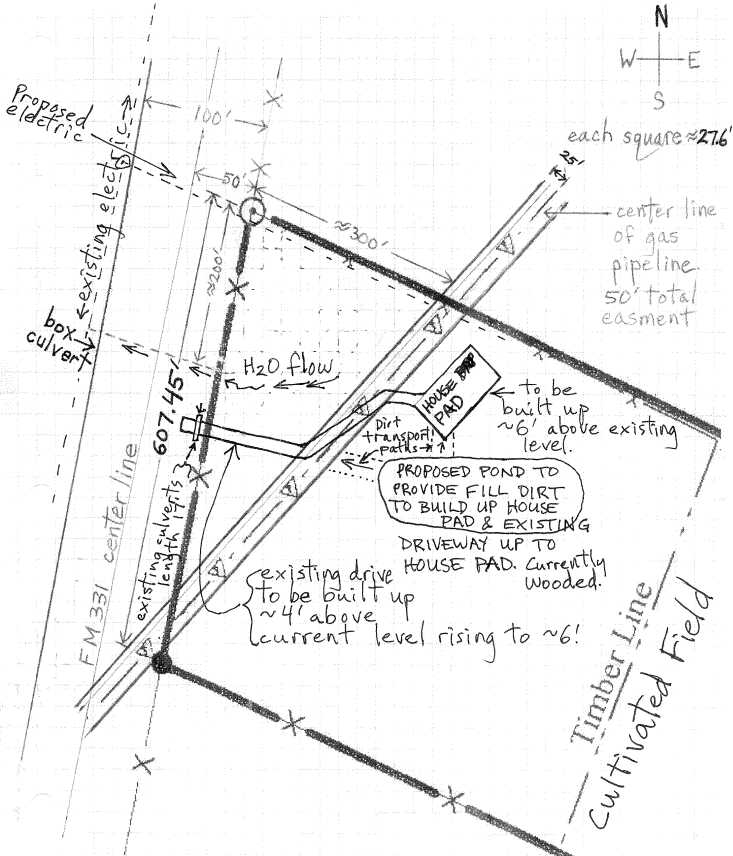 N
W E
S
each square ≈27.6'
Proposed
electric
100'
50'
≈300'
25'
existing electric
≈200'
center line
of gas
pipeline.
50' total
easment
box
culvert
H2O flow
607.45'
HOUSE
PAD
to be
built up
~6' above existing
level.
Dirt
transport
paths
PROPOSED POND TO
PROVIDE FILL DIRT
TO BUILD UP HOUSE
PAD & EXISTING
DRIVEWAY UP TO
HOUSE PAD. Currently
wooded.
existing culverts 3
length 17'
existing drive
to be built up
~4' above
current level rising to ~6!
FM 331 center line
Timber Line
Cultivated Field